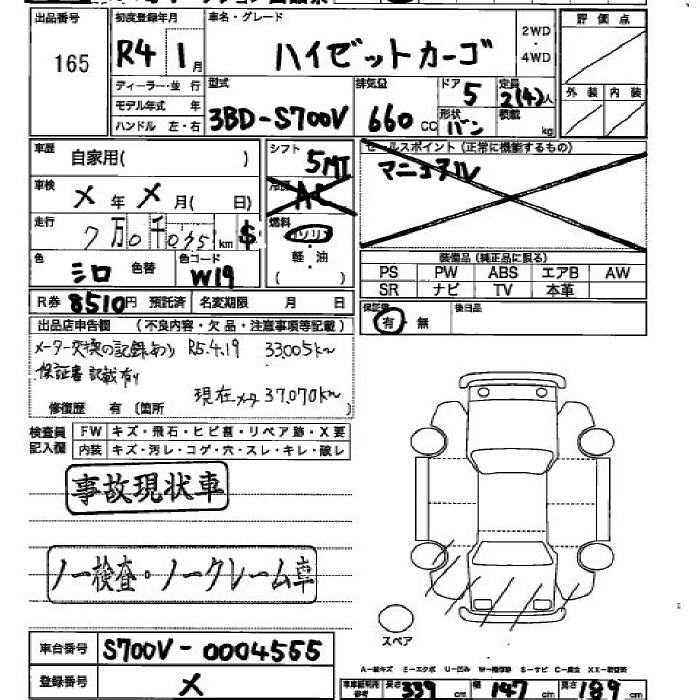 出品番号 初度登録年月 車名・グレード 2WD・4WD 評価点
165 R4 1月 ハイゼットカーゴ
ディーラー・並行 型式 排気量 ドア 定員 外装 内装
モデル年式 年 3BD-S700V 660cc 5 2(4)人
ハンドル 左・右 形状 バン 積載 kg
車歴 自家用( ) シフト 5MT セールスポイント(正常に機能するもの)
車検 メ年メ月( 日) 冷房 AC マニュアル
走行 7万0千075km $ 燃料 ガソリン
軽・油
( )
色 シロ 色替 色コード W19
装備品(純正品に限る)
PS PW ABS エアB AW
SR ナビ TV 本革
R券 8510円 預託済 名変期限 月 日
保証書 有・無 後日品
出品店申告欄 (不良内容・欠品・注意事項等記載)
メーター交換の記録あり R5.4.19 33,005km
保証書記載有り
現在メータ 37,070km
修復歴 有 (箇所
検査員記入欄 FW キズ・飛石・ヒビ割・リペア跡・X要
内装 キズ・汚レ・コゲ・穴・スレ・キレ・破レ
事故現状車
ノー検査・ノークレーム車
スペア
車台番号 S700V-0004555
登録番号 メ
A-線キズ E-エクボ U-凹み W-補修跡 S-サビ C-腐食 XX-取替済
車庫証明用参考 長さ 339cm 幅 147cm 高さ 189cm